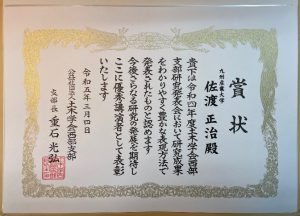 賞状
九州産業大学
佐渡 正治殿
貴下は令和四年度土木学会西部
支部研究発表会において研究成果
をわかりやすく豊かな表現方法で
発表されたものと認めます
今後さらなる研究の発展を期待し
ここに優秀講演者として表彰
いたします
令和五年三月四日
公益社団法人土木学会西部支部
支部長 重石 光弘